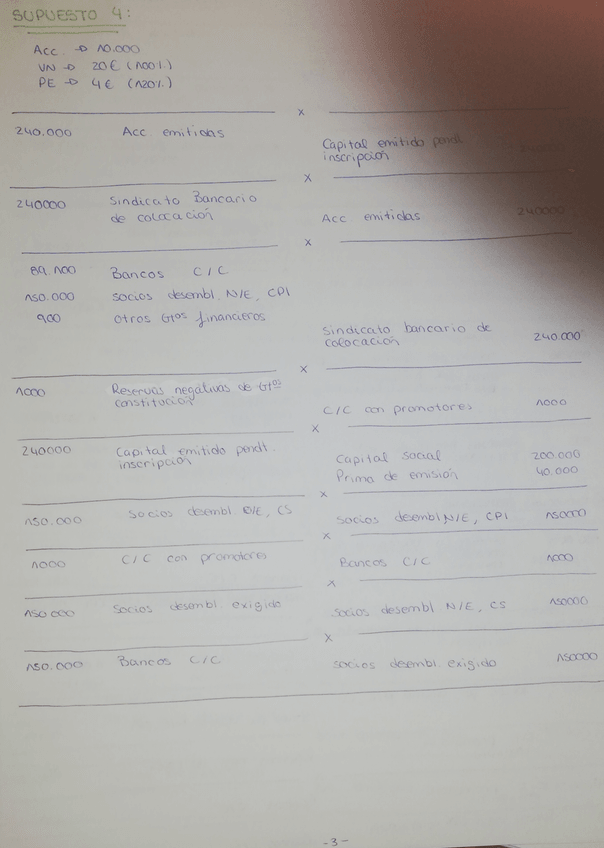 SUPUESTO 4:
Acc. → 10.000
VN → 20€ (100%)
PE → 4€ (120%)
x
240.000 Acc emitidas
Capital emitido pendt
inscripción
x
240000 Sindicato Bancario
de colocación
Acc emitidas 240000
x
89.100 Bancos C/C
150.000 socios desembl. N/E, CPI
900 otros Gtos financieros
Sindicato bancario de
colocación 240.000
x
1000 Reservas negativas de Gtos
constitución
C/C con promotores 1000
x
240000 Capital emitido pendt.
inscripción
Capital social 200.000
Prima de emisión 40.000
x
150.000 Socios desembl N/E, CS
Socios desembl N/E, CPI 150000
x
1000 C/C con promotores
Bancos C/C 1000
x
150000 Socios desembl. exigido
Socios desembl N/E, CS 150000
x
150.000 Bancos C/C
socios desembl. exigido 150000
-3-